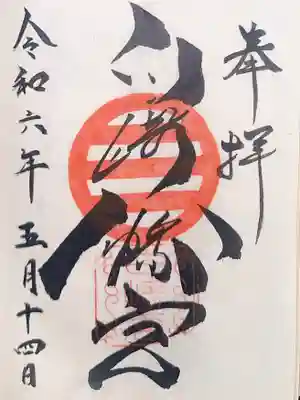 奉拝
八幡宮
令和六年 五月十四日